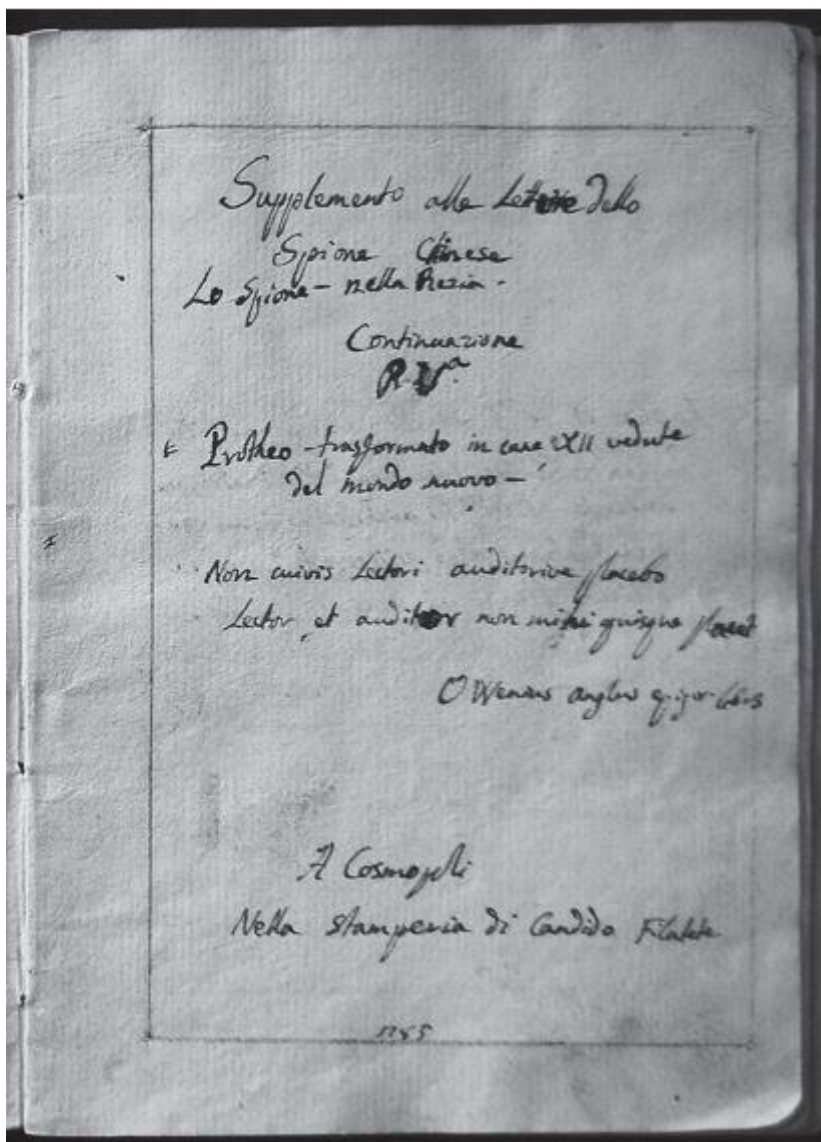 Supplemento alle Lettere dello
Spione Chinese
Lo Spione - nella Rezia -
Continuazione
Protheo - trasformato in cane XII vedute
del mondo nuovo -
Non cuivis Lectori auditorive placebo
Lector et auditor non mihi quisque placet
OWenus anglus
A Cosmopoli
Nella stamperia di Candido Filalete
1785